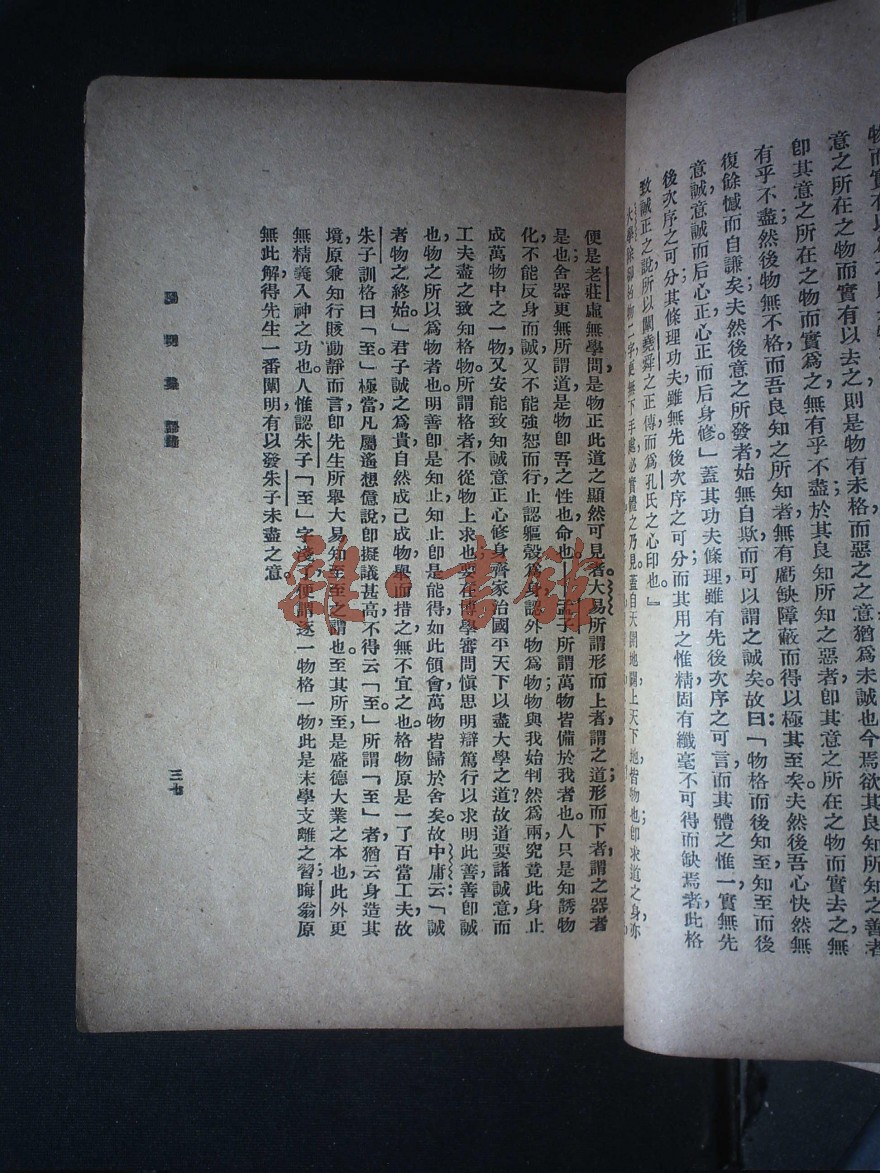 物而實有以爲
意之所在之物而實有以去之則是物有未格而惡之之意猶爲未誠也今焉欲其良知所知之善者
卽其意之所在之物而實爲之無有乎不盡於其良知所知之惡者卽其意之所在之物而實去之無
有乎不盡然後物無不格而吾良知之所知者無有虧缺障蔽而得以極其至矣夫然後吾心快然無
復餘憾而自謙矣夫然後意之所發者始無自欺而可以謂之誠矣故曰：「物格而後知至知至而後
意誠，意誠而后心正心正而后身修」蓋其功夫條理雖有先後次序之可言，而其體之惟一實無先
後次序之可分；其條理功夫雖無先後次序之可分而其用之惟精固有纖毫不可得而缺焉者此格
致誠正之說所以闡堯舜之正傳而爲孔氏之心印也。』
大學除卻格物二字更無下手處必實體之乃見。蓋自天開地闢，上天下地，皆物也；卽求道之身，亦
便是老莊虛無學問是物正此道之顯然可見者大易所謂形而上者，謂之道；形而下者，謂之器者
是也舍器更無所謂道，是物卽吾之性也，命也。孟子所謂萬物皆備於我者也。人只是知誘物
化，不能反身而誠，又不能強恕而行，止認軀殼爲身，認外物爲物；物與我始判然爲兩，究竟此身止
成萬物中之一物，又安能致知誠意正心修身齊家治國平天下以盡大學之道？故道要諸誠意，而
工夫盡之致知格物。所謂格者不從物上求也要在博學審問愼思明辯篤行以求明此善；善卽誠
也，物之所以爲物者也。明善卽是知止，知止卽是能得，如此領會萬物皆歸於舍矣。故中庸云：「誠
者物之終始。」君子誠之爲貴，自然成己成物，舉而措之無不宜之也。格物原是一了百當工夫，故
朱子訓格曰「至。」極當。凡屬遙想億說，卽擬議甚高，不得云「至。」所謂「至」者猶云身造其
境，原兼知行賅動靜而言，卽先生所舉大易知至至之謂也。至其所至，是盛德大業之本也，此外更
無精義入神之功也。人惟認朱子「至」字淺了，便謂逐一物格一物，此是末學支離之習，晦翁原
無此解，得先生一番闡明，有以發朱子未盡之意。
陽明集 語錄
三七
雜·書館